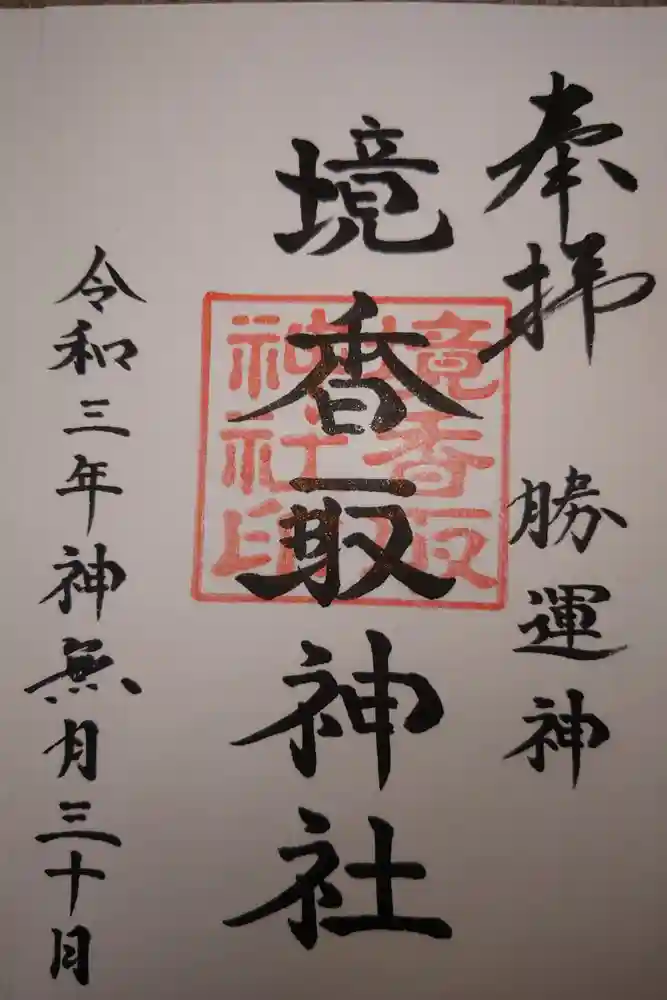 奉拝 勝運神
境香取神社
境香取神社印
令和三年神無月三十日